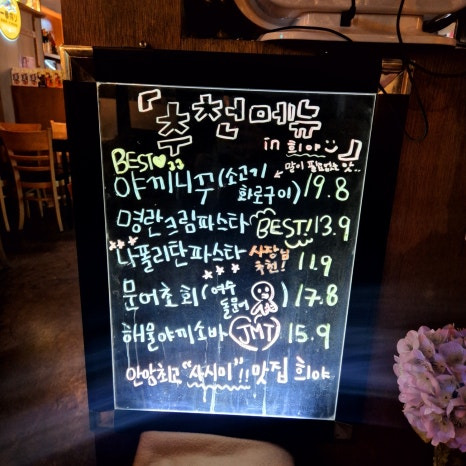 「추천메뉴
in 희야 」
BEST 말이 필요없는 맛..
야끼니꾸 (소고기 화로구이) 19.8
명란크림파스타 BEST! 13.9
나폴리탄파스타 사장님 추천! 11.9
문어초회 (여수 돌문어) 17.8
해물야끼소바 JMT 15.9
안암최고 "사시미"!! 맛집 희야